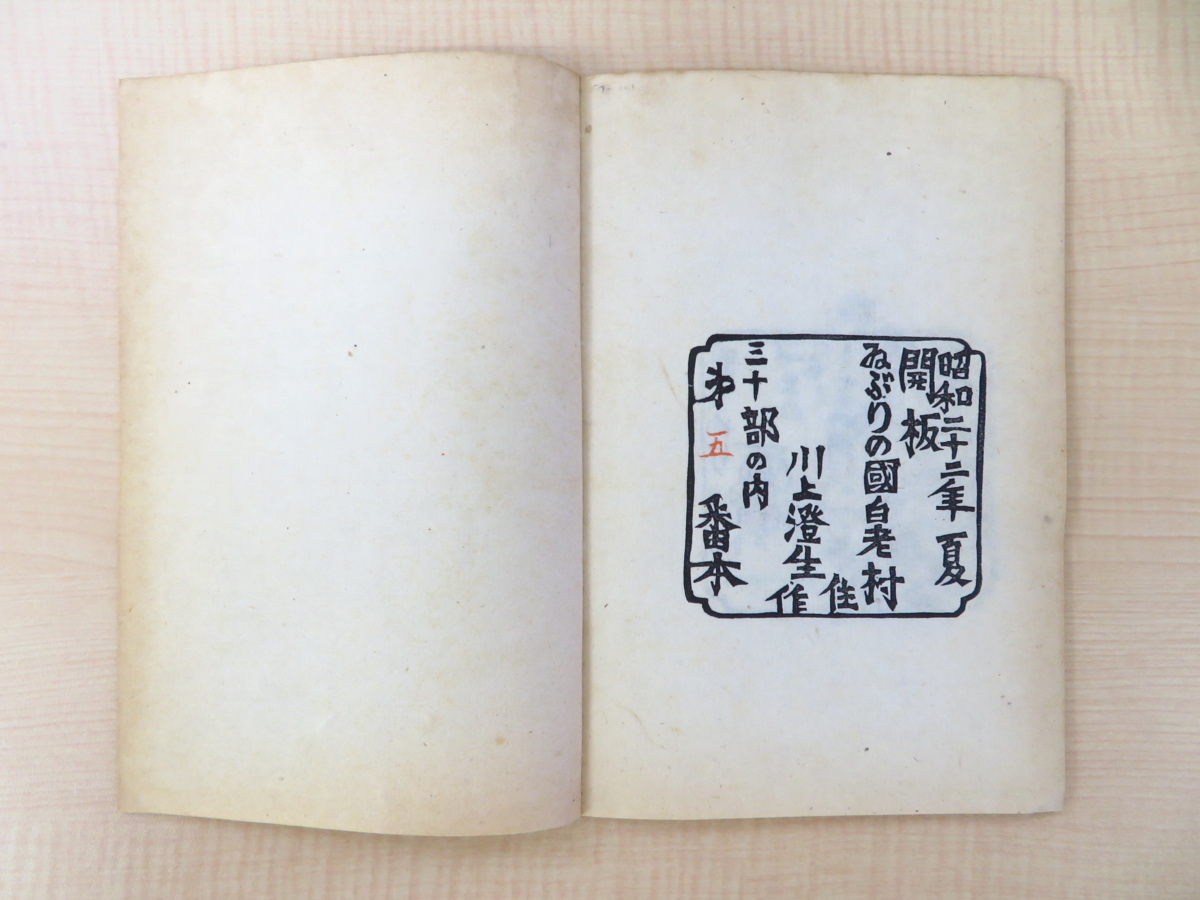 昭和二十二年夏
開板
ゑぶりの國白老村
住
川上澄生
作
三十部の内
第五番本